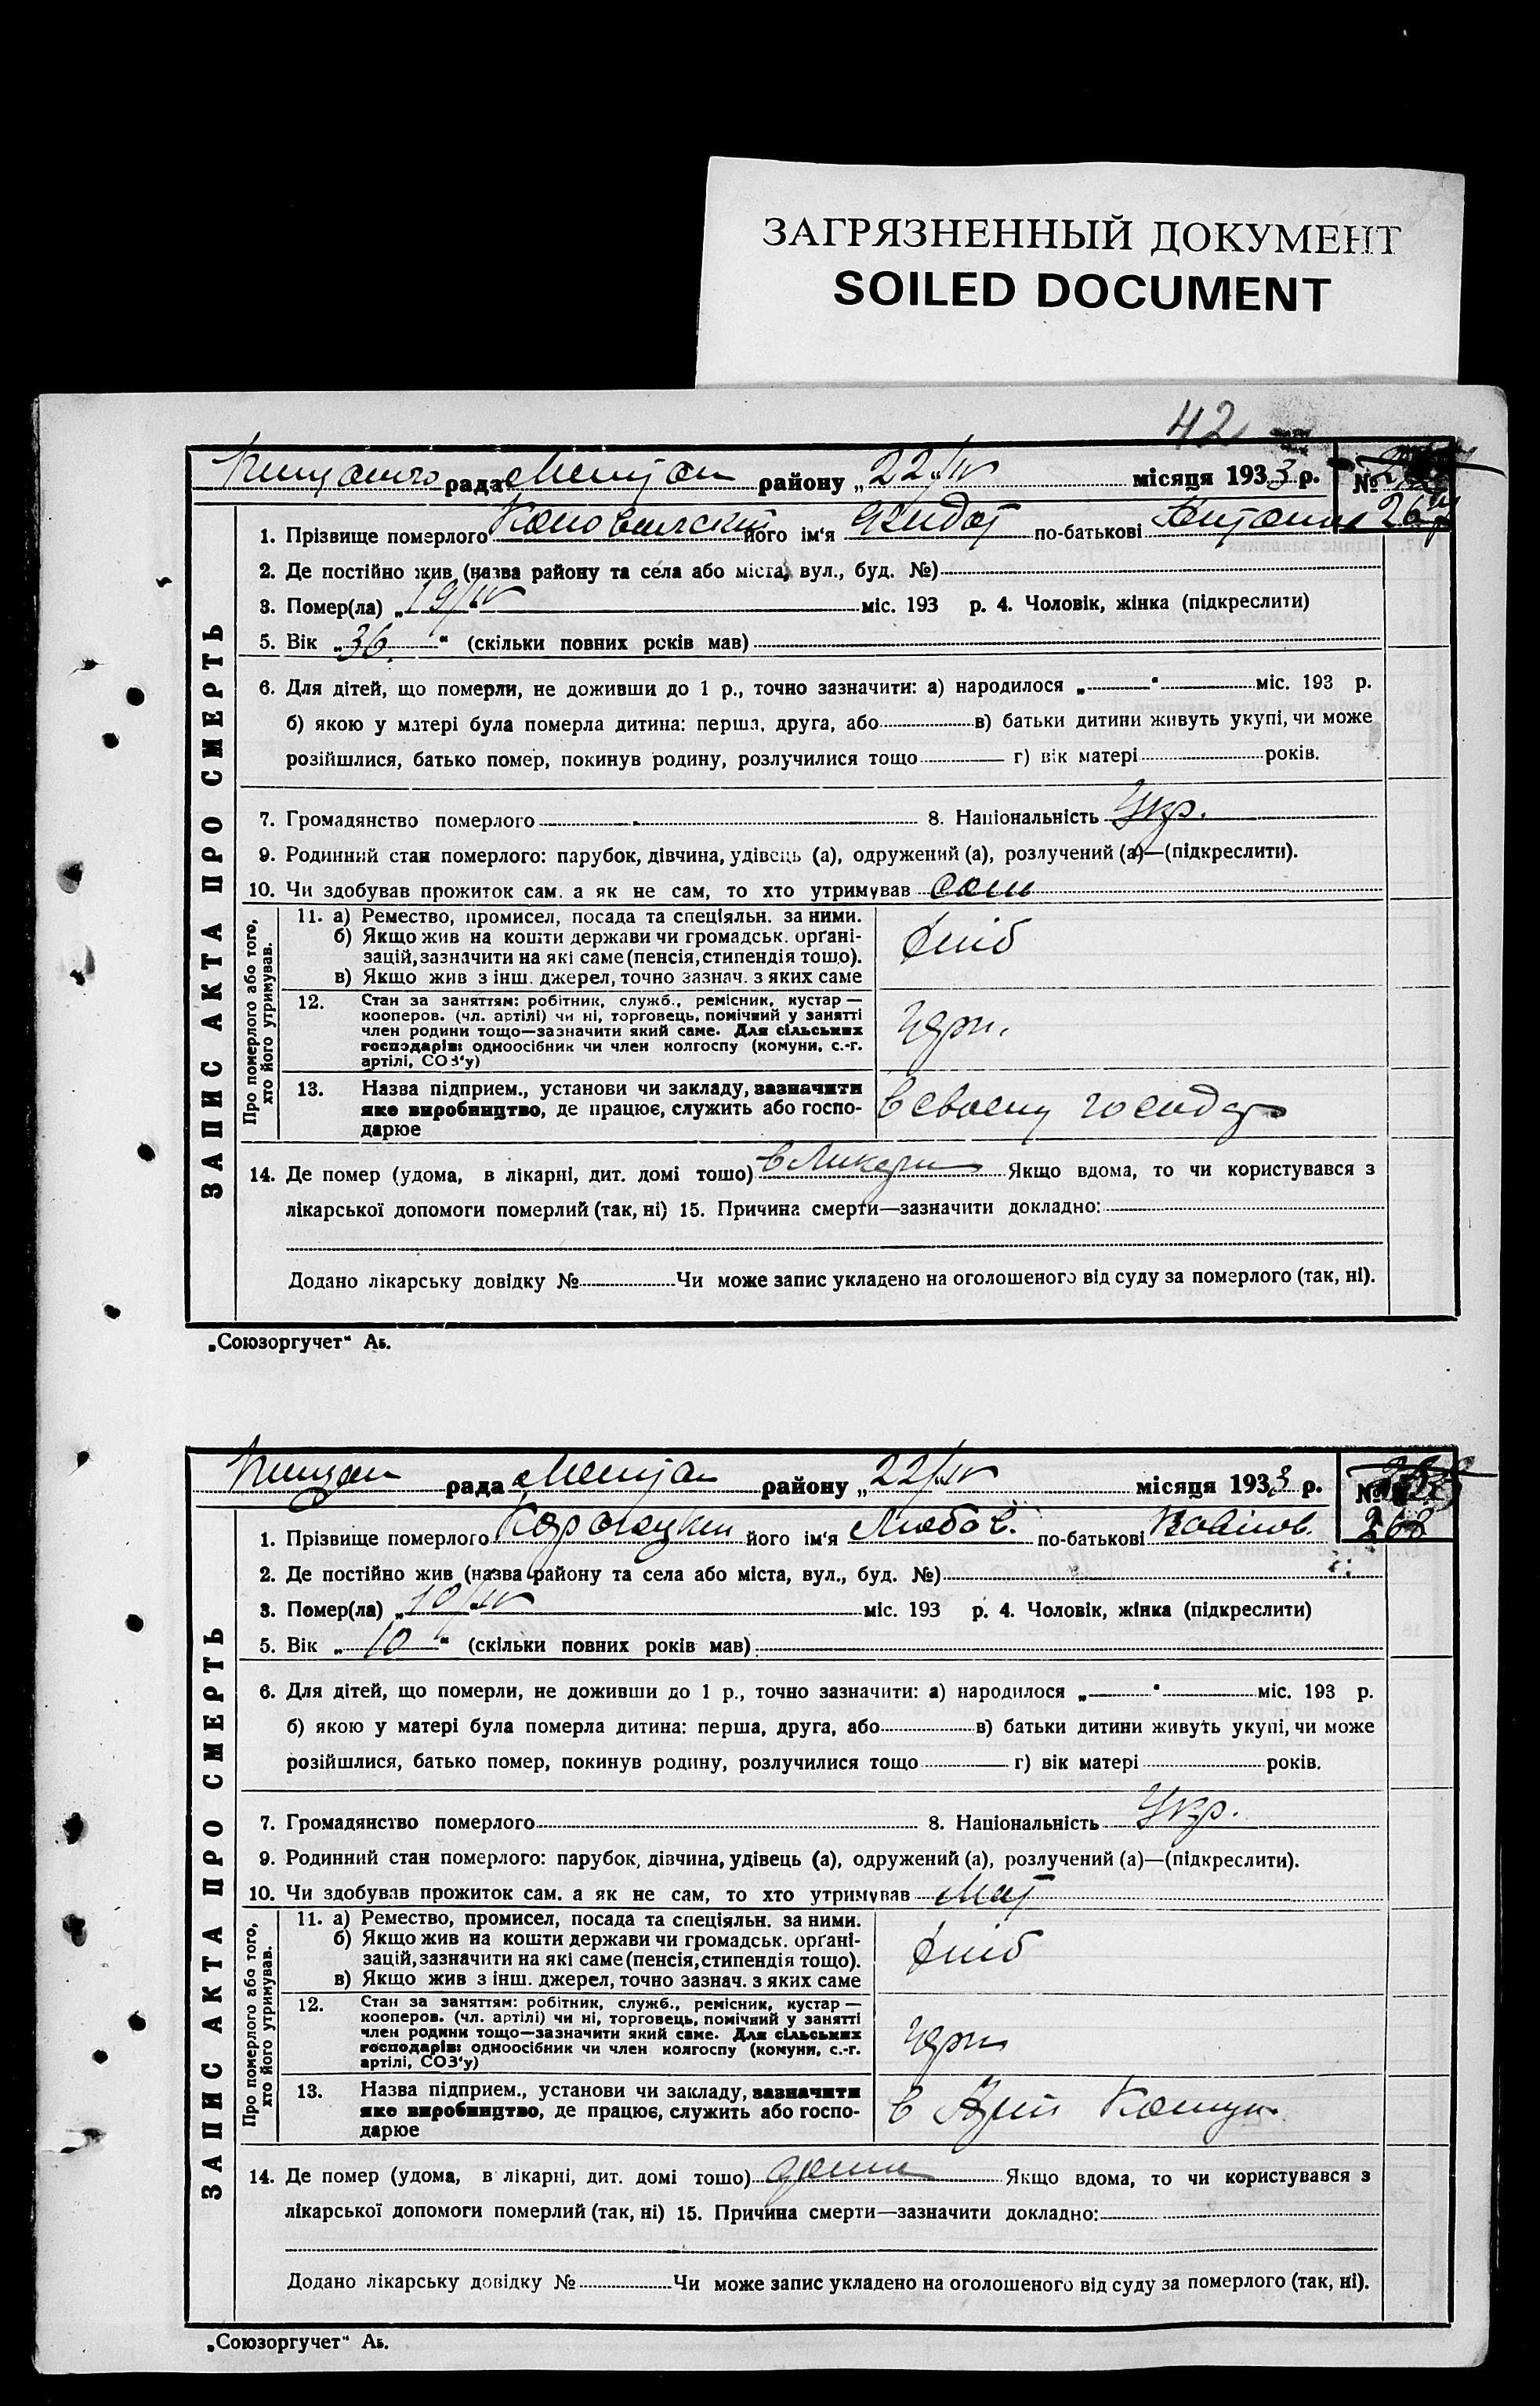 ЗАГРЯЗНЕННЫЙ ДОКУМЕНТ
SOILED DOCUMENT
42
рада району „22/IV місяця 1933 р. №
1. Прізвище померлого його ім'я по-батькові
2. Де постійно жив (назва району та села або міста, вул., буд. №)
3. Помер(ла) „19/IV міс. 193 р. 4. Чоловік, жінка (підкреслити)
5. Вік „36" (скільки повних років мав)
6. Для дітей, що померли, не доживши до 1 р., точно зазначити: а) народилося „ " міс. 193 р.
б) якою у матері була померла дитина: перша, друга, або в) батьки дитини живуть укупі, чи може
розійшлися, батько помер, покинув родину, розлучилися тощо г) вік матері років.
7. Громадянство померлого 8. Національність Укр.
9. Родинний стан померлого: парубок, дівчина, удівець (а), одружений (а), розлучений (а)—(підкреслити).
10. Чи здобував прожиток сам. а як не сам, то хто утримував сам
ЗАПИС АКТА ПРО СМЕРТЬ
Про померлого або того, хто його утримував.
11. а) Ремество, промисел, посада та спеціяльн. за ними.
б) Якщо жив на кошти держави чи громадськ. орґані-
зацій, зазначити на які саме (пенсія, стипендія тощо).
в) Якщо жив з інш. джерел, точно зазнач. з яких саме
хліб
12. Стан за заняттям: робітник, служб., ремісник, кустар —
кооперов. (чл. артілі) чи ні, торговець, помічний у занятті
член родини тощо—зазначити який саме. Для сільських
господарів: одноосібник чи член колгоспу (комуни, с.-г.
артілі, СОЗ'у)
13. Назва підприєм., установи чи закладу, зазначити
яке виробництво, де працює, служить або госпо-
дарює
в своему господар
14. Де помер (удома, в лікарні, дит. домі тощо) Якщо вдома, то чи користувався з
лікарської допомоги померлий (так, ні) 15. Причина смерти—зазначити докладно:
Додано лікарську довідку № Чи може запис укладено на оголошеного від суду за померлого (так, ні).
„Союзоргучет" Аь.
рада району „22/IV місяця 1933 р. №
268
1. Прізвище померлого його ім'я Любов. по-батькові
2. Де постійно жив (назва району та села або міста, вул., буд. №)
3. Помер(ла) „10/IV міс. 193 р. 4. Чоловік, жінка (підкреслити)
5. Вік „10" (скільки повних років мав)
6. Для дітей, що померли, не доживши до 1 р., точно зазначити: а) народилося „ " міс. 193 р.
б) якою у матері була померла дитина: перша, друга, або в) батьки дитини живуть укупі, чи може
розійшлися, батько помер, покинув родину, розлучилися тощо г) вік матері років.
7. Громадянство померлого 8. Національність Укр.
9. Родинний стан померлого: парубок, дівчина, удівець (а), одружений (а), розлучений (а)—(підкреслити).
10. Чи здобував прожиток сам. а як не сам, то хто утримував Мат
ЗАПИС АКТА ПРО СМЕРТЬ
Про померлого або того, хто його утримував.
11. а) Ремество, промисел, посада та спеціяльн. за ними.
б) Якщо жив на кошти держави чи громадськ. орґані-
зацій, зазначити на які саме (пенсія, стипендія тощо).
в) Якщо жив з інш. джерел, точно зазнач. з яких саме
хліб
12. Стан за заняттям: робітник, служб., ремісник, кустар —
кооперов. (чл. артілі) чи ні, торговець, помічний у занятті
член родини тощо—зазначити який саме. Для сільських
господарів: одноосібник чи член колгоспу (комуни, с.-г.
артілі, СОЗ'у)
13. Назва підприєм., установи чи закладу, зазначити
яке виробництво, де працює, служить або госпо-
дарює
14. Де помер (удома, в лікарні, дит. домі тощо) дома Якщо вдома, то чи користувався з
лікарської допомоги померлий (так, ні) 15. Причина смерти—зазначити докладно:
Додано лікарську довідку № Чи може запис укладено на оголошеного від суду за померлого (так, ні).
„Союзоргучет" Аь.